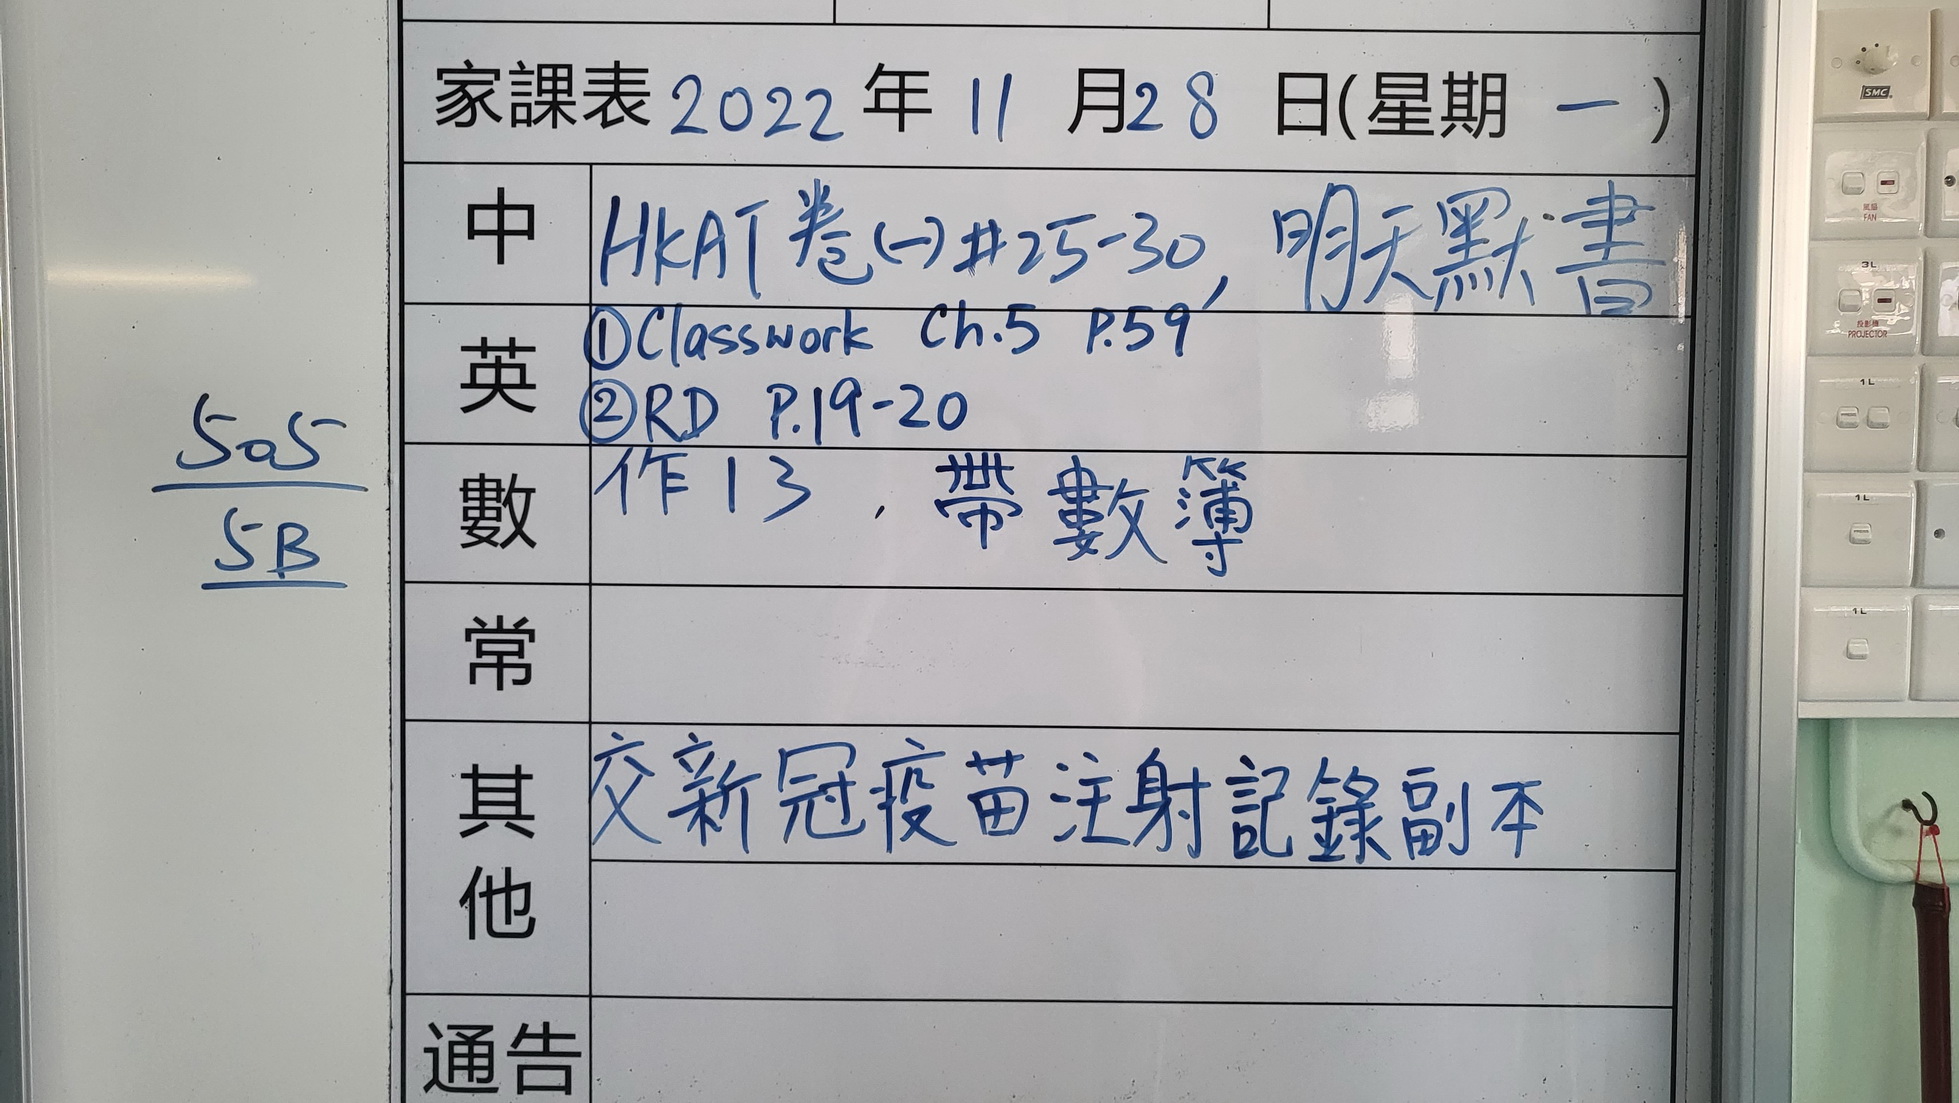 家課表 2022 年 11 月 28 日(星期 一 )
中 HKAT 卷(一)#25-30, 明天默書
英 ①Classwork Ch.5 P.59
②RD P.19-20
數 作13, 帶數簿
常
其他 交新冠疫苗注射記錄副本
通告
505
5B
SMC
風扇
FAN
3L
投影機
PROJECTOR
1L
1L
1L